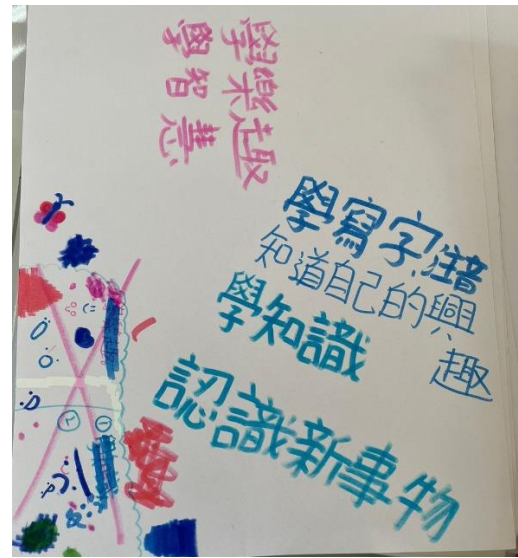 學樂趣
學智慧
學寫字,注音
知道自己的興
趣
學知識
認識新事物